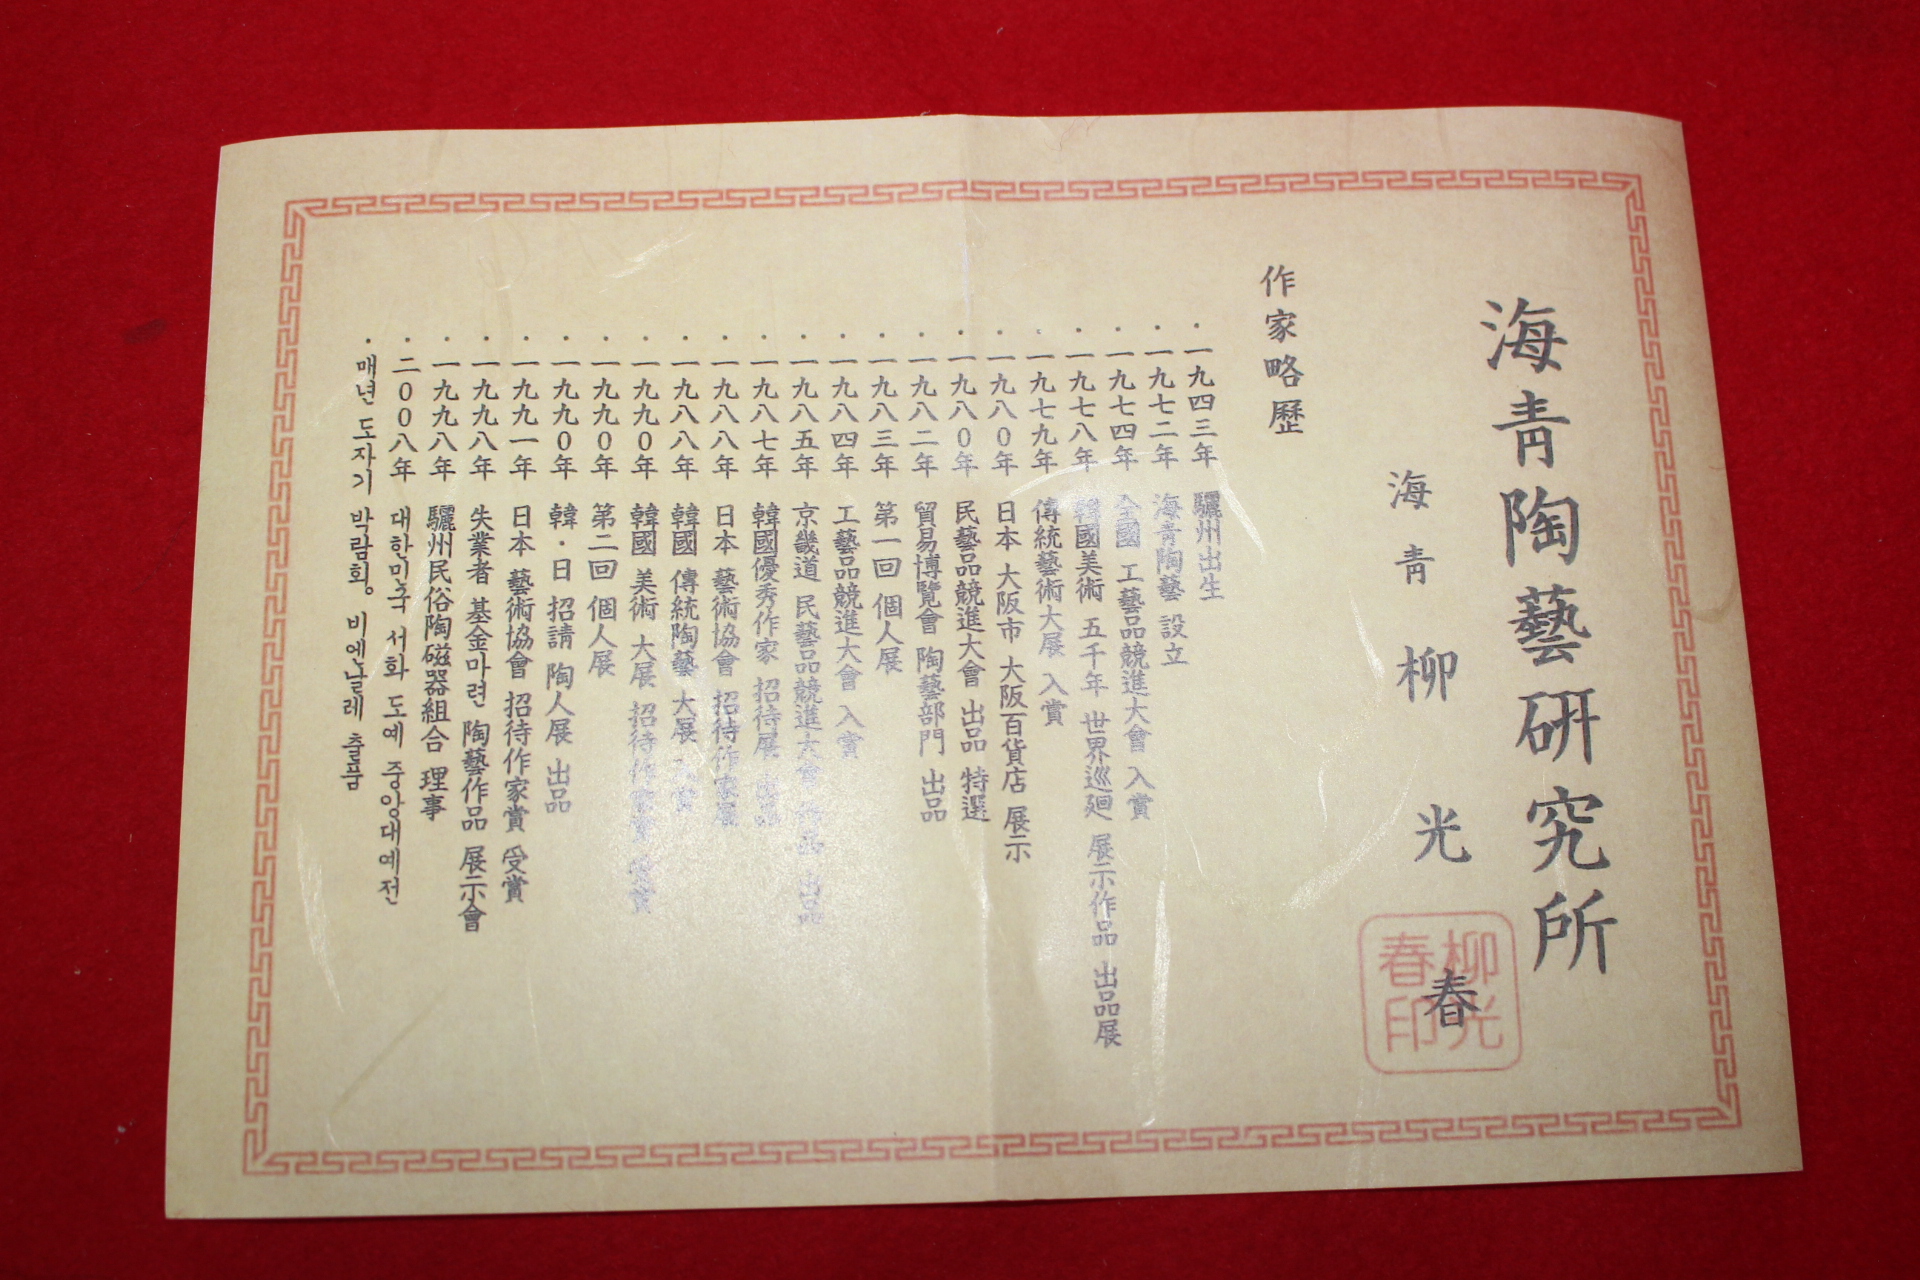 海靑陶藝硏究所
海靑 柳光春
柳光
春印
作家略歷
· 一九四三年 驪州出生
· 一九七二年 海靑陶藝 設立
· 一九七四年 全國 工藝品競進大會 入賞
· 一九七八年 韓國美術 五千年 世界巡廻 展示作品 出品展
· 一九七九年 傳統藝術大展 入賞
· 一九八0年 日本 大阪市 大阪百貨店 展示
· 一九八0年 民藝品競進大會 出品 特選
· 一九八二年 貿易博覽會 陶藝部門 出品
· 一九八三年 第一回 個人展
· 一九八四年 工藝品競進大會 入賞
· 一九八五年 京畿道 民藝品競進大會 作品 出品
· 一九八七年 韓國優秀作家 招待展 出品
· 一九八八年 日本 藝術協會 招待作家展
· 一九八八年 韓國 傳統陶藝 大展 入賞
· 一九九0年 韓國 美術 大展 招待作家賞 受賞
· 一九九0年 第二回 個人展
· 一九九0年 韓·日 招請 陶人展 出品
· 一九九一年 日本 藝術協會 招待作家賞 受賞
· 一九九八年 失業者 基金마련 陶藝作品 展示會
· 一九九八年 驪州民俗陶磁器組合 理事
· 二00八年 대한민국 서화 도예 중앙대예전
· 매년 도자기 박람회。 비엔날레 출품